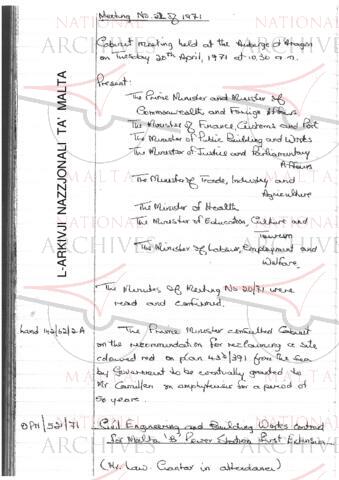 Meeting No. 21 of 1971
Cabinet meeting held at the Auberge d'Aragon
on Tuesday 20th April, 1971 at 10.30 a.m.
Present:
The Prime Minister and Minister of
Commonwealth and Foreign Affairs
The Minister of Finance, Customs and Port
The Minister of Public Building and Works
The Minister of Justice and Parliamentary
Affairs
The Minister of Trade, Industry and
Agriculture
The Minister of Health
The Minister of Education, Culture and
Tourism
The Minister of Labour, Employment and
Welfare
The Minutes of Meeting No 20/71 were
read and confirmed.
Land 142/62/2A
The Prime Minister consulted Cabinet
on the recommendation for reclaiming a site
coloured red on plan 433/391 from the sea
by Government to be eventually granted to
Mr Camilleri on emphyteusis for a period of
50 years.
OPM/521/71
Civil Engineering and Building Works contract
for Malta 'B' Power Station First Extension
(Mr. Law. Cantor in attendance)
L-ARKIVJI NAZZJONALI TA' MALTA
NATIONAL
ARCHIVES
MALTA